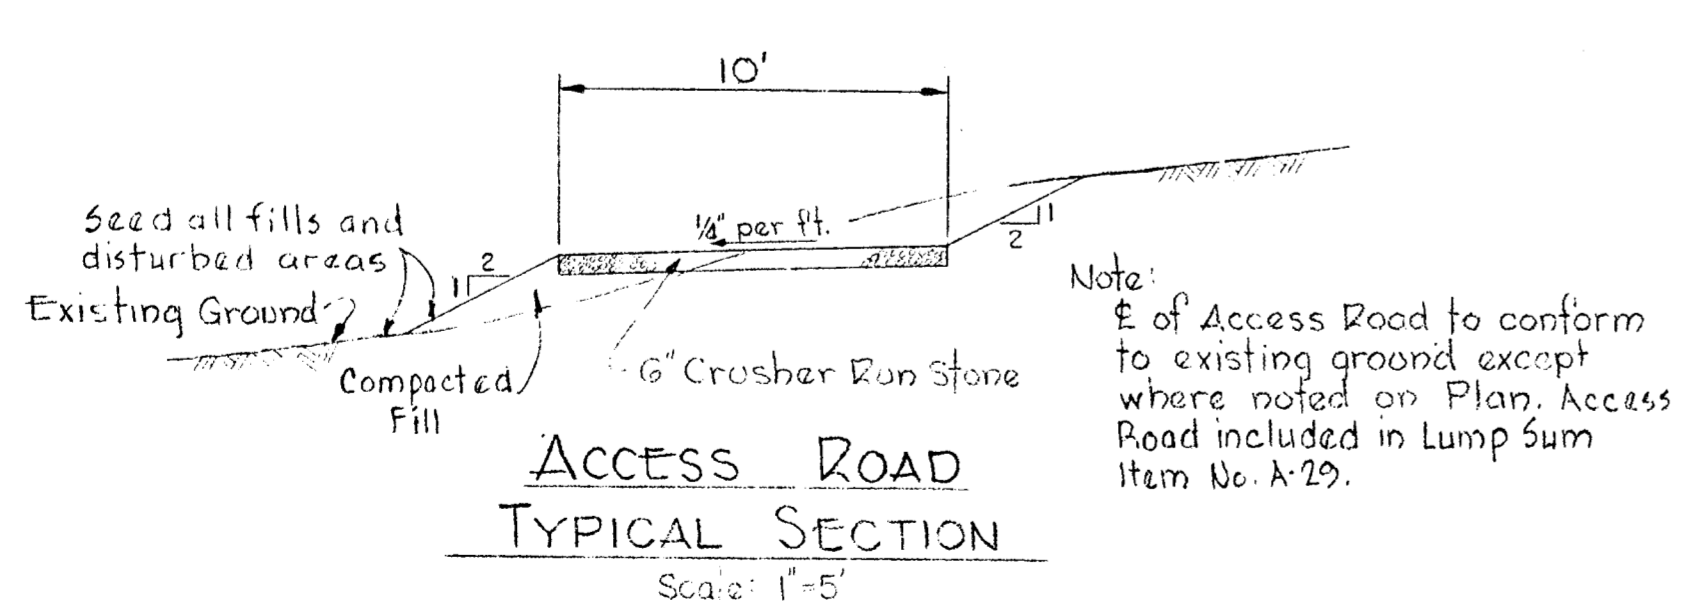 10'
1/4" per ft.
Seed all fills and
disturbed areas
1
2
2
1
Existing Ground
Compacted
Fill
6" Crusher Run Stone
Note:
℄ of Access Road to conform
to existing ground except
where noted on Plan. Access
Road included in Lump Sum
Item No. A-29.
ACCESS ROAD
TYPICAL SECTION
Scale: 1"=5'